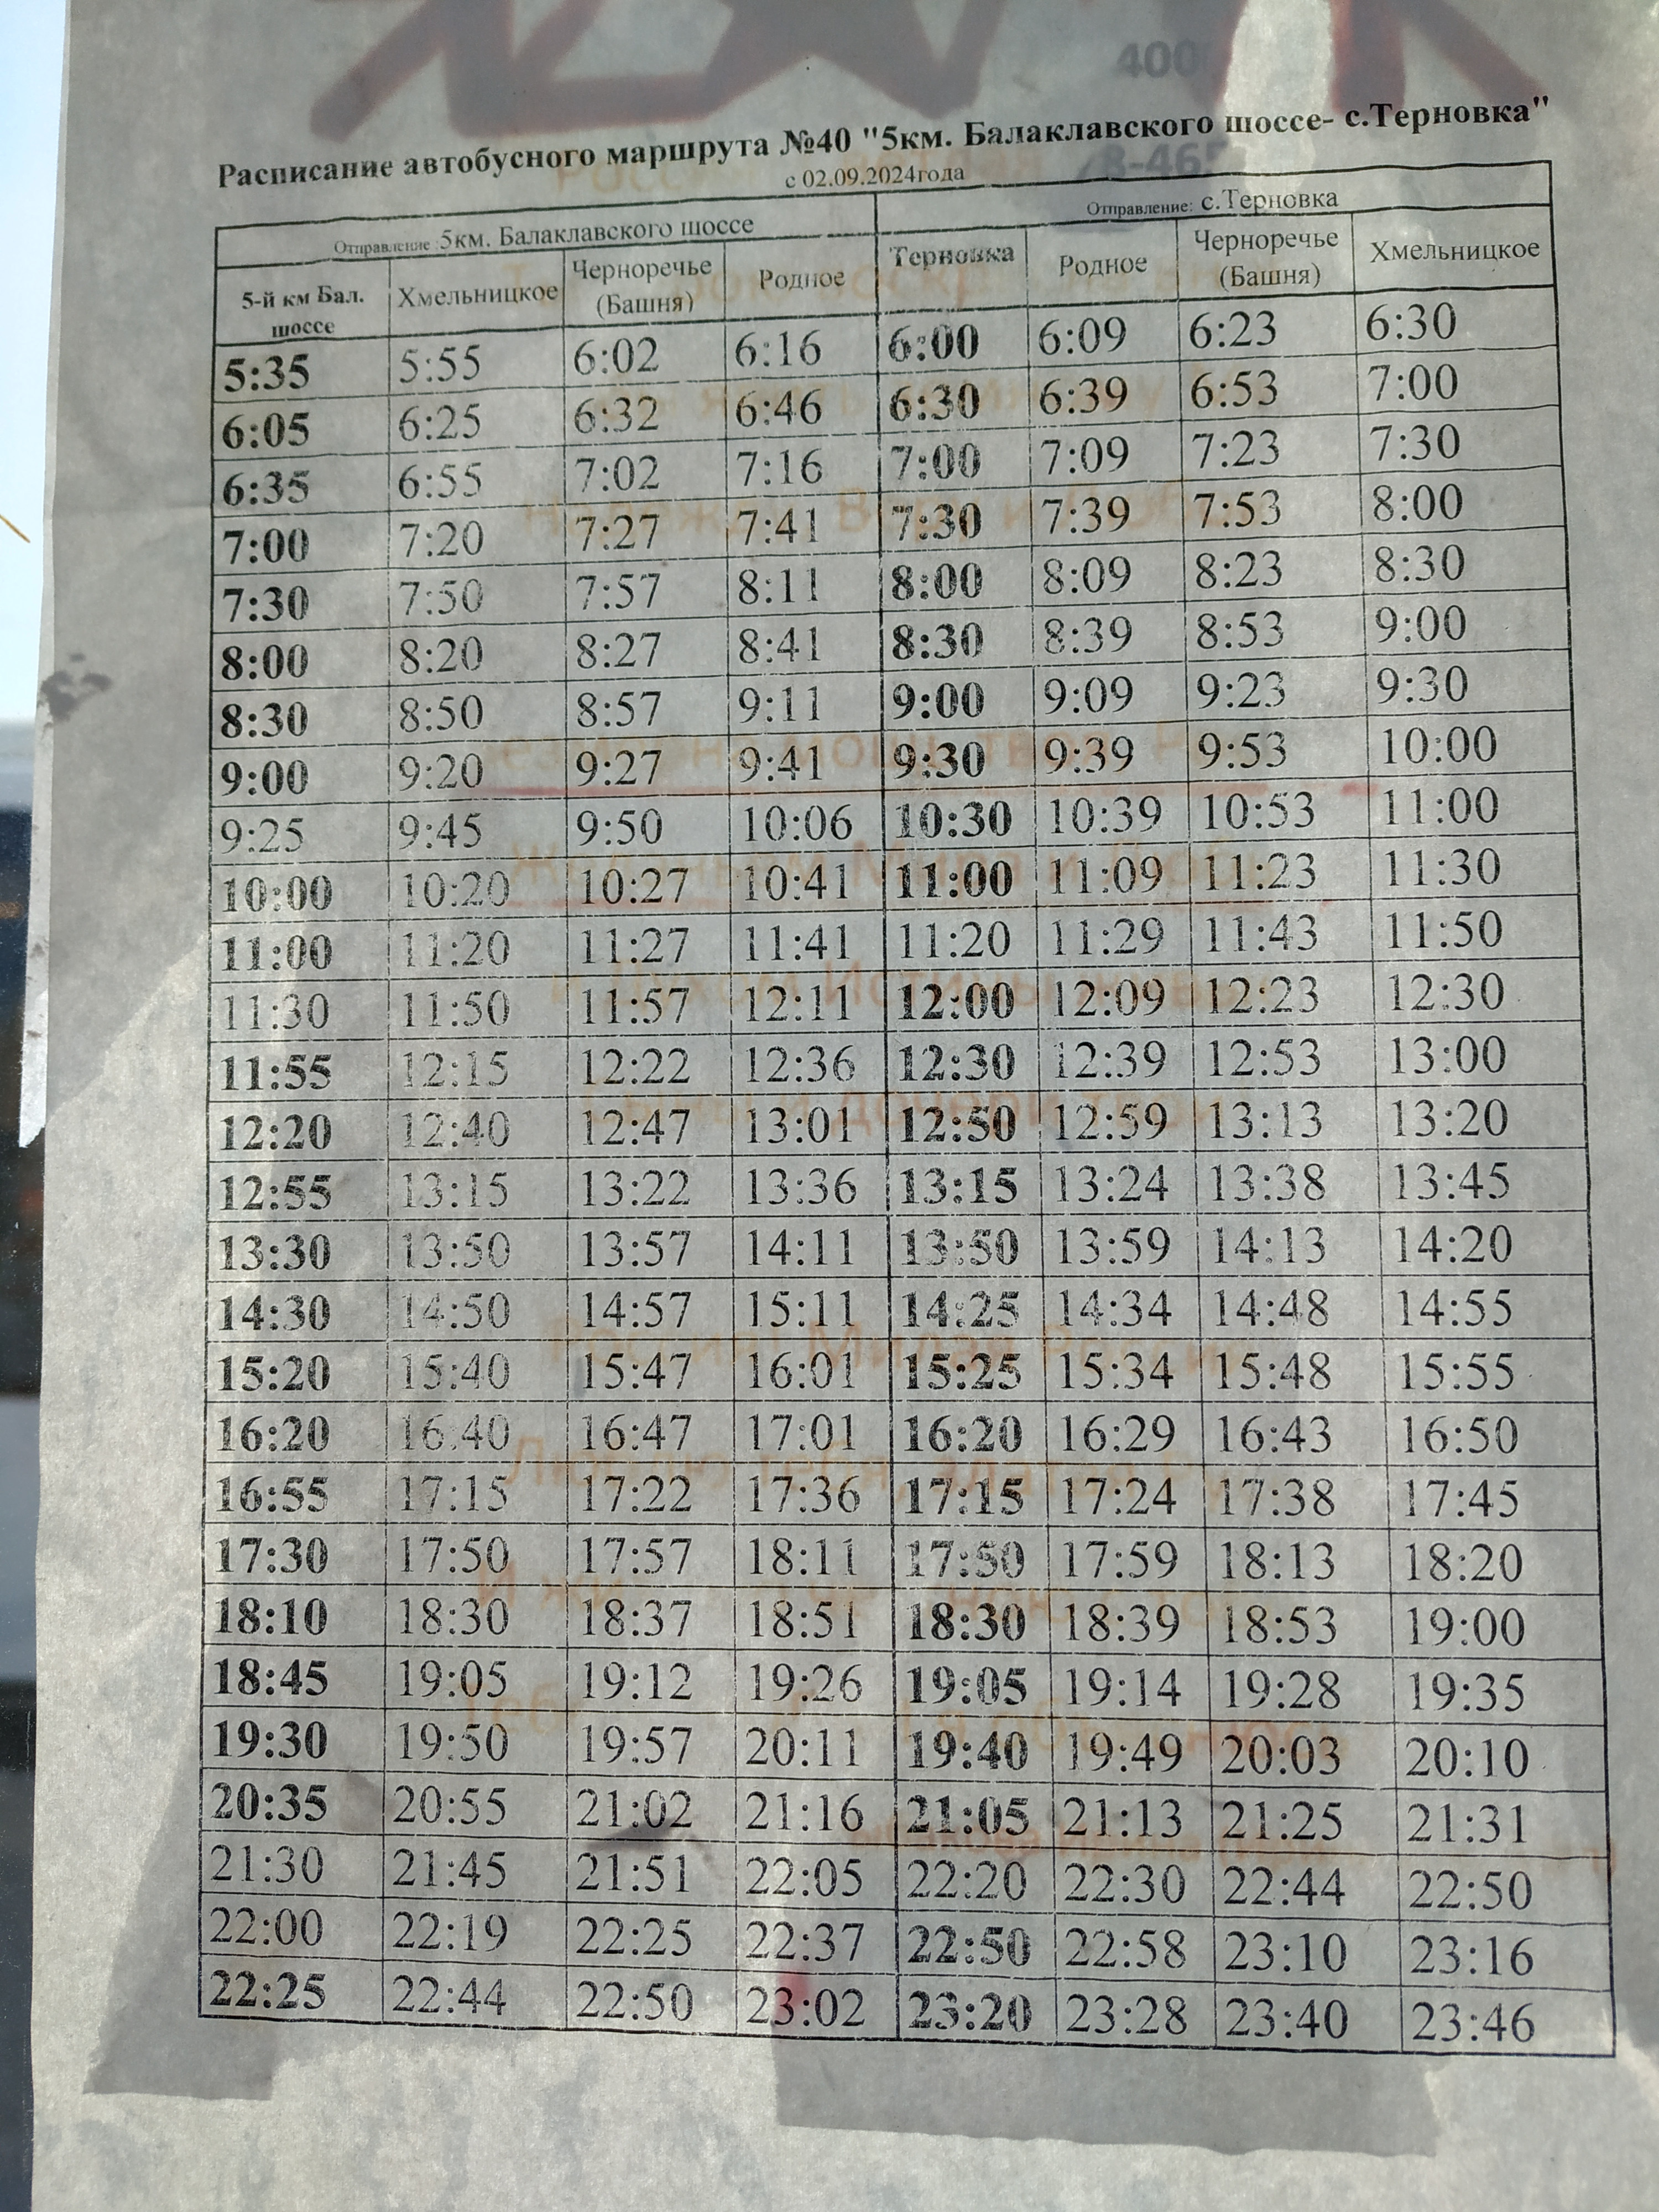 400
Расписание автобусного маршрута №40 "5км. Балаклавского шоссе- с.Терновка"
с 02.09.2024года
Отправление :5км. Балаклавского шоссе Отправление: с.Терновка
5-й км Бал. шоссе Хмельницкое Черноречье (Башня) Родное Терновка Родное Черноречье (Башня) Хмельницкое
5:35 5:55 6:02 6:16 6:00 6:09 6:23 6:30
6:05 6:25 6:32 6:46 6:30 6:39 6:53 7:00
6:35 6:55 7:02 7:16 7:00 7:09 7:23 7:30
7:00 7:20 7:27 7:41 7:30 7:39 7:53 8:00
7:30 7:50 7:57 8:11 8:00 8:09 8:23 8:30
8:00 8:20 8:27 8:41 8:30 8:39 8:53 9:00
8:30 8:50 8:57 9:11 9:00 9:09 9:23 9:30
9:00 9:20 9:27 9:41 9:30 9:39 9:53 10:00
9:25 9:45 9:50 10:06 10:30 10:39 10:53 11:00
10:00 10:20 10:27 10:41 11:00 11:09 11:23 11:30
11:00 11:20 11:27 11:41 11:20 11:29 11:43 11:50
11:30 11:50 11:57 12:11 12:00 12:09 12:23 12:30
11:55 12:15 12:22 12:36 12:30 12:39 12:53 13:00
12:20 12:40 12:47 13:01 12:50 12:59 13:13 13:20
12:55 13:15 13:22 13:36 13:15 13:24 13:38 13:45
13:30 13:50 13:57 14:11 13:50 13:59 14:13 14:20
14:30 14:50 14:57 15:11 14:25 14:34 14:48 14:55
15:20 15:40 15:47 16:01 15:25 15:34 15:48 15:55
16:20 16:40 16:47 17:01 16:20 16:29 16:43 16:50
16:55 17:15 17:22 17:36 17:15 17:24 17:38 17:45
17:30 17:50 17:57 18:11 17:50 17:59 18:13 18:20
18:10 18:30 18:37 18:51 18:30 18:39 18:53 19:00
18:45 19:05 19:12 19:26 19:05 19:14 19:28 19:35
19:30 19:50 19:57 20:11 19:40 19:49 20:03 20:10
20:35 20:55 21:02 21:16 21:05 21:13 21:25 21:31
21:30 21:45 21:51 22:05 22:20 22:30 22:44 22:50
22:00 22:19 22:25 22:37 22:50 22:58 23:10 23:16
22:25 22:44 22:50 23:02 23:20 23:28 23:40 23:46